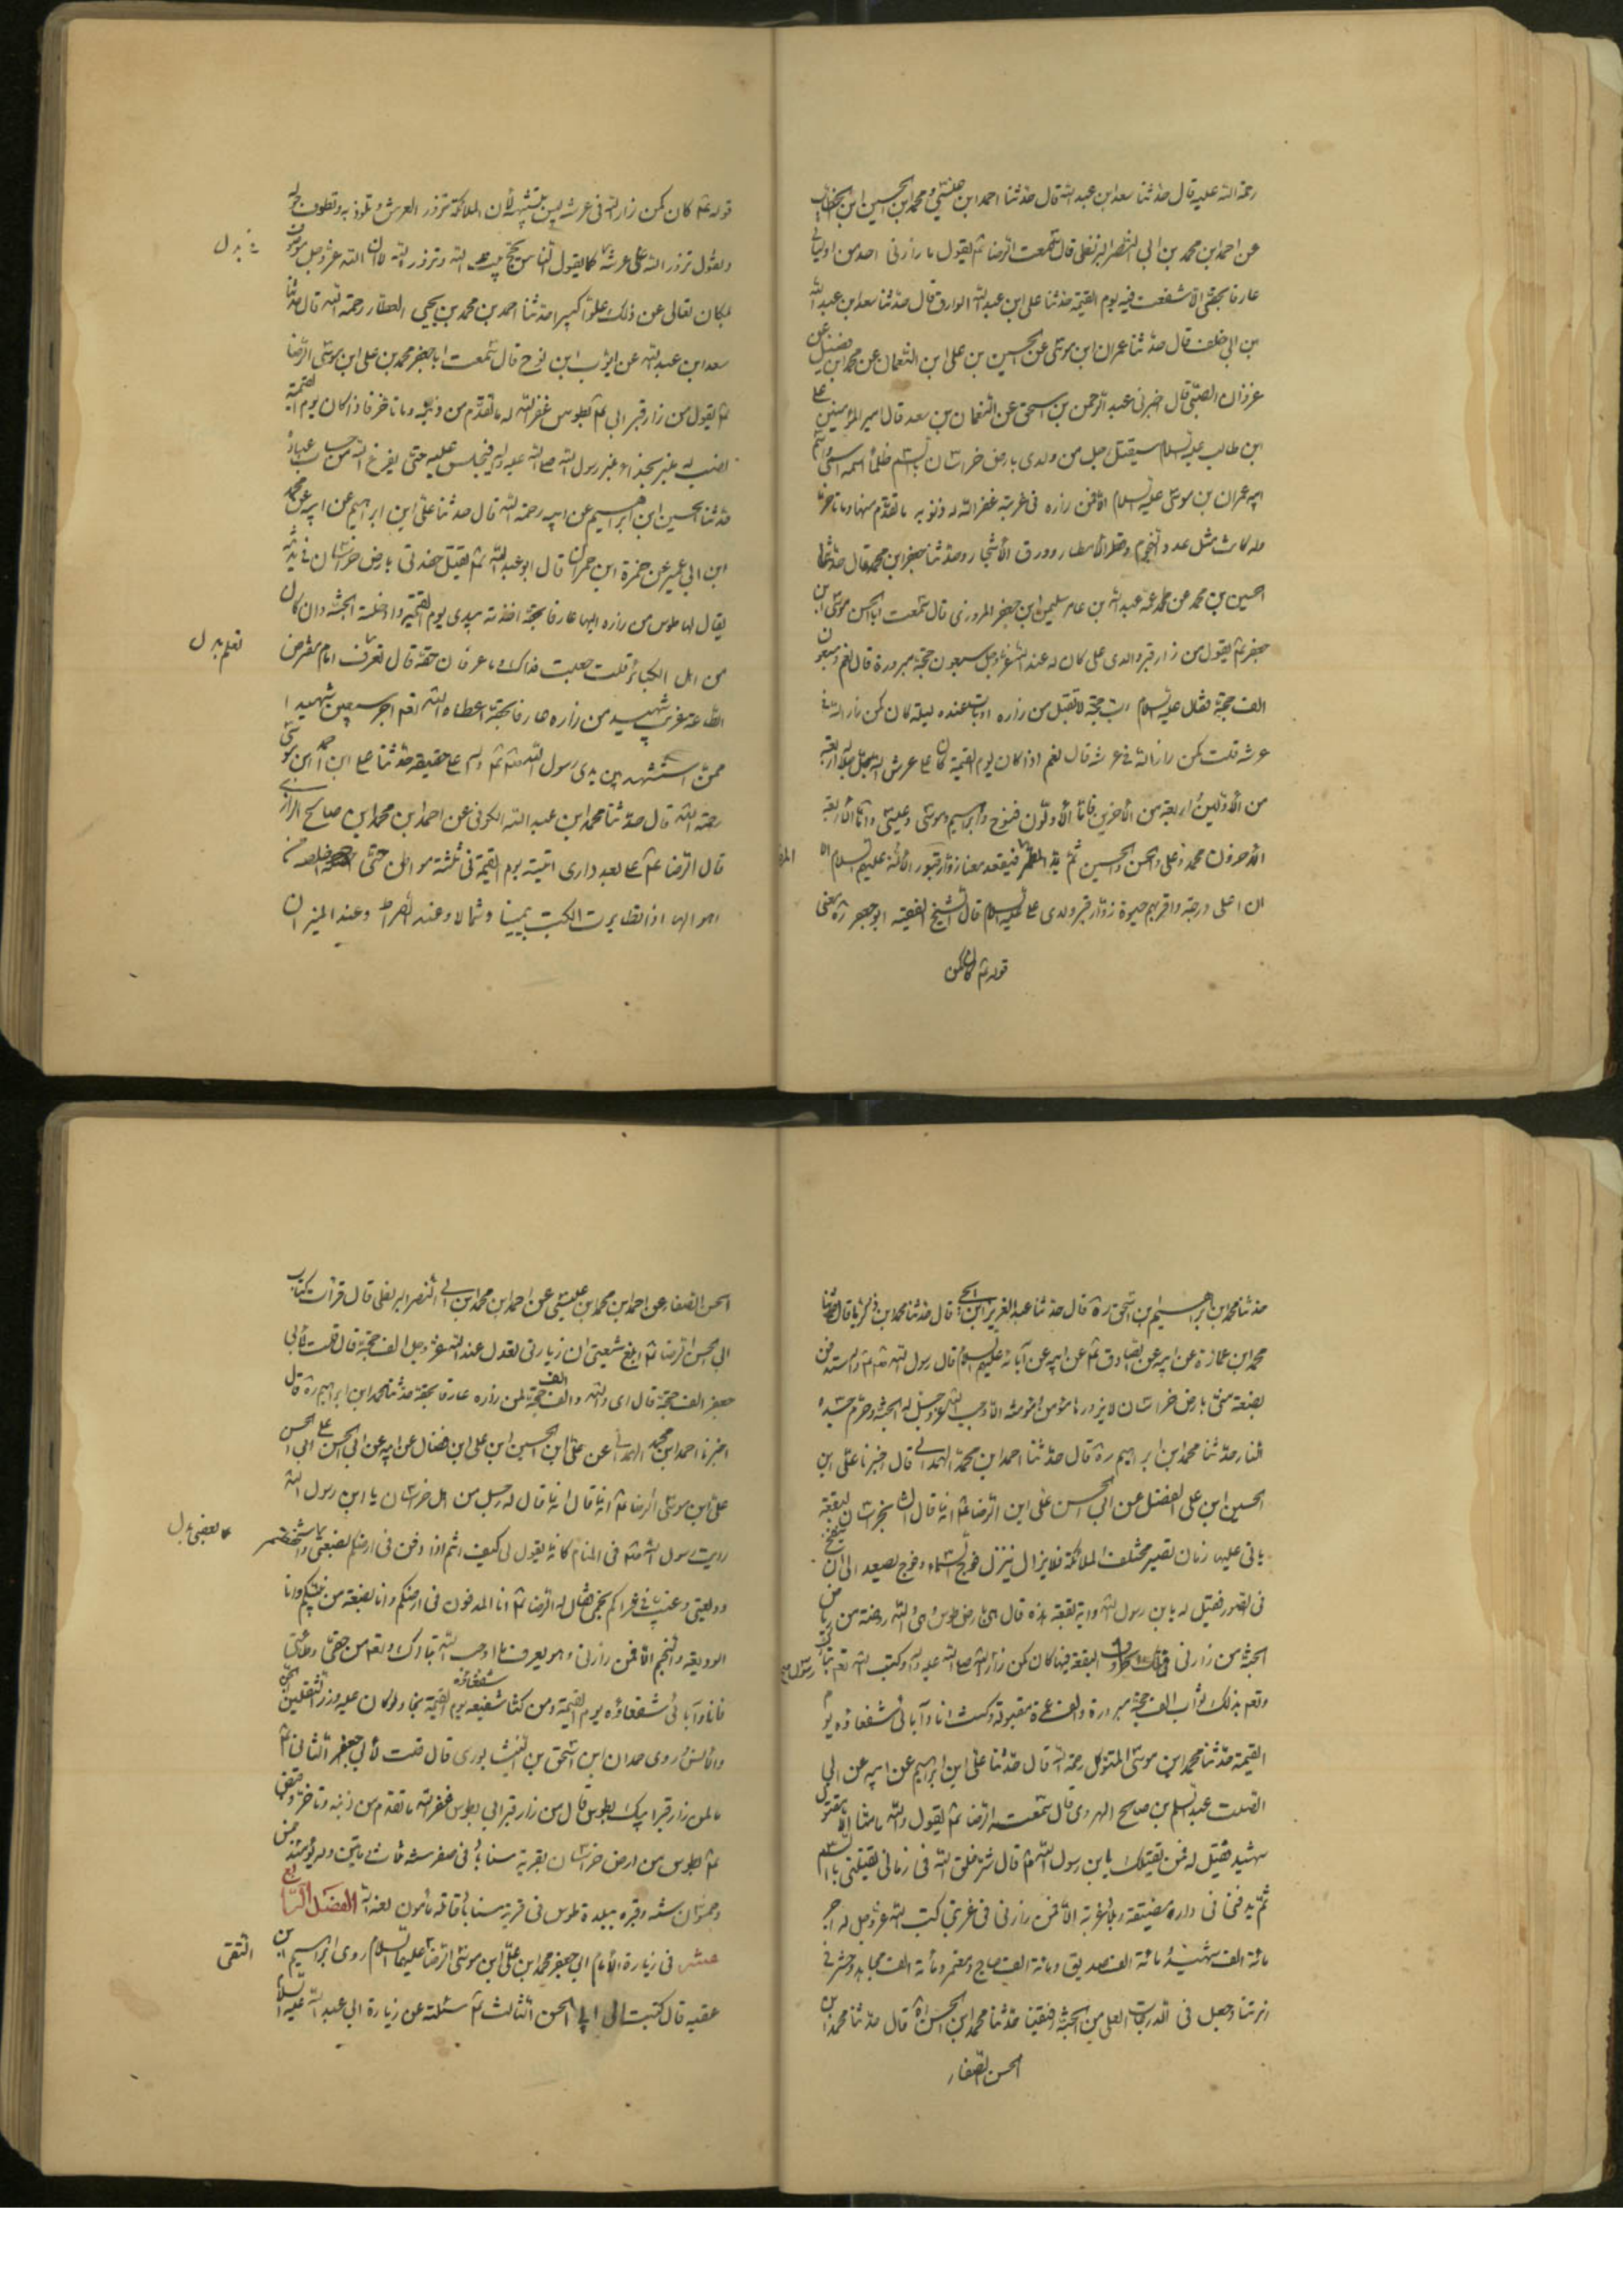 رحمة الله عليه قال حدثنا سعد ابن عبد الله قال حدثنا احمد ابن عيسى و محمد ابن الحسين ابن ابي الخطاب
عن احمد ابن محمد بن ابي النصر البزنطى قال سمعت الرضا ع يقول ما زارنى احد من اوليائى
عارفا بحقى الا شفعت فيه يوم القيمة حدثنا على ابن عبد الله الوراق قال حدثنا سعد ابن عبد الله
بن ابى خلف قال حدثنا عمران ابن موسى عن الحسين بن على ابن النعمان عن محمد ابن فضيل عن
غزوان الضبى قال اخبرنى عبد الرحمن بن اسحق عن النعمان بن سعد قال امير المؤمنين على
ابن طالب عليه السلام سيقتل رجل من ولدى بارض خراسان بالسم ظلما اسمه اسمى واسم
ابيه عمران بن موسى عليه السلام الا فمن زاره فى غربته غفر الله له ذنوبه ما تقدم منها وما تاخر
ولو كانت مثل عدد النجوم وقطر الامطار وورق الاشجار وحدثنا جعفر ابن محمد قال حدثنا
الحسين بن محمد عن عمه عبد الله بن عامر سليمن ابن جعفر المروزى قال سمعت ابا الحسن موسى ابن
جعفر ع يقول من زار قبر ولدى على كان له عند الله عز وجل سبعون حجة مبرورة قال نعم وسبعون
الف حجة فقال عليه السلام رب حجة لا تقبل من زاره او بات عنده ليلة كان كمن زار الله فى
عرشه قلت كمن زار الله فى عرشه قال نعم اذا كان يوم القيمة كان على عرش الله عز وجل اربعة
من الاولين واربعة من الاخرين فاما الاولون فنوح وابراهيم وموسى وعيسى واما الاربعة
الاخرون محمد وعلى والحسن والحسين ثم يمد المطمر فيقعد معنا زوار قبور الائمة عليهم السلام الا
ان اعلى درجة واقربهم حبوة زوار قبر ولدى على عليه السلام قال الشيخ الفقيه ابو جعفر ره معنى
قوله ع كان كمن
قوله ع كان كمن زار الله فى عرشه ليس بتشبيه لان الملائكة تزور العرش وتلوذ به وتطوف حوله
وتقول تزور الله على عرشه كما يقول الناس نحج بيت الله وتزور الله لا ان الله عز وجل موصوف
بمكان تعالى عن ذلك علوا كبيرا حدثنا احمد بن محمد بن يحيى العطار رحمه الله قال حدثنا
سعد ابن عبد الله عن ايوب ابن نوح قال سمعت ابا جعفر محمد بن على ابن موسى الرضا
ع يقول من زار قبر ابى ع بطوس غفر الله له ما تقدم من ذنبه وما تاخر فاذا كان يوم القيمة
نصب له منبر بحذاء منبر رسول الله صلى الله عليه واله فيجلس عليه حتى يفرغ الله من حساب عباده
حدثنا الحسين ابن ابراهيم عن ابيه رحمة الله قال حدثنا على ابن ابراهيم عن ابيه عن محمد
ابن ابى عمير عن حمزة ابن حمران قال ابو عبد الله ع يقتل حفدتى بارض خراسان فى مدينة
يقال لها طوس من زاره اليها عارفا بحقه اخذته بيدى يوم القيمة وادخلته الجنة وان كان
من اهل الكبائر قلت جعلت فداك وما عرفان حقه قال تعرف امام مفترض
الطاعة غريب شهيد من زاره عارفا بحقه اعطاه الله تعم اجر سبعين شهيدا
ممن استشهد بين يدى رسول الله على حقيقة حدثنا على ابن احمد ابن موسى
رحمه الله قال حدثنا محمد ابن عبد الله الكوفى عن احمد ابن محمد ابن صالح الرازى
قال الرضا ع على بعد دارى اتيته يوم القيمة فى ثلثة مواطن حتى اخلصه من
اهوالها اذا تطايرت الكتب يمينا وشمالا وعند الصراط وعند الميزان
تعلم بدل
حدثنا محمد ابن ابراهيم ابن اسحق ره قال حدثنا عبد العزيز ابن يحيى قال حدثنا محمد ابن زكريا قال حدثنا
محمد ابن عمارة عن ابيه عن الصادق ع عن ابيه عن آبائه عليهم السلام قال رسول الله ستدفن
بضعة منى بارض خراسان لا يزورها مؤمن او مؤمنة الا اوجب الله عز وجل له الجنة وحرم جسده
النار حدثنا محمد ابن ابراهيم ره قال حدثنا احمد ابن محمد الهمدانى قال اخبرنا على ابن
الحسين ابن على الفضل عن ابى الحسن على ابن الرضا ع انه قال ان بخراسان لبقعة
ياتى عليها زمان تصير مختلف الملائكة فلا يزال ينزل فوج من السماء وفوج يصعد الى ان ينفخ
فى الصور فقيل له يابن رسول الله واية بقعة هذه قال هى بارض طوس وهى والله روضة من رياض
الجنة من زارنى فى تلك البقعة فيها كان كمن زار رسول الله صلى الله عليه واله وكتب الله تعم تبارك
وتعم بذلك ثواب الف حجة مبرورة والف عمرة مقبولة وكنت انا وآبائى شفعاؤه يوم
القيمة حدثنا محمد ابن موسى المتوكل رحمه الله قال حدثنا على ابن ابراهيم عن ابيه عن ابى
الصلت عبد السلم بن صالح الهروى قال سمعت الرضا ع يقول والله ما منا الا مقتول
شهيد فقيل له فمن يقتلك يابن رسول الله قال شر خلق الله فى زمانى يقتلنى بالسم
ثم يدفنى فى دار مضيقة وبلاد غربة الا فمن زارنى فى غربتى كتب الله عز وجل له اجر
مائة الف شهيد ومائة الف صديق ومائة الف حاج ومعتمر ومائة الف مجاهد وحشر فى
زمرتنا وجعل فى الدرجات العلى من الجنة رفيقنا حدثنا محمد ابن الحسن ره قال حدثنا محمد ابن
الحسن الصفار
الحسن الصفار عن احمد ابن محمد ابن عيسى عن احمد ابن محمد ابن ابى النصر البزنطى قال قرات كتاب
ابى الحسن الرضا ع ابلغ شيعتى ان زيارتى تعدل عند الله عز وجل الف حجة قال قلت لابى
جعفر الف حجة قال اى والله والف الف حجة لمن زاره عارفا بحقه حدثنا محمد ابن ابراهيم ره قال
اخبرنا احمد ابن محمد الهمدانى عن على ابن الحسين ابن على ابن فضال عن ابيه عن ابى الحسن على
على ابن موسى الرضا ع انه قال انه قال له رجل من اهل خراسان يا ابن رسول الله
رايت رسول الله فى المنام كانه يقول لى كيف انتم اذا دفن فى ارضكم بضعتى واستحفظتم
وديعتى وغيب فى ثراكم نجمى فقال له الرضا ع انا المدفون فى ارضكم وانا بضعة من نبيكم وانا
الوديعة والنجم الا فمن زارنى وهو يعرف ما اوجب الله تبارك وتعم من حقى وطاعتى
فانا وآبائى شفعاؤه يوم القيمة ومن كنا شفيعه يوم القيمة نجا ولو كان عليه وزر الثقلين الجن
والانس وروى حمدان ابن اسحق بن النيشابورى قال قلت لابى جعفر الثانى ع
ما لمن زار قبر ابيك بطوس قال من زار قبر ابى بطوس غفر الله ما تقدم من ذنبه وما تاخر وقبض
ع بطوس من ارض خراسان بقرية سناباد فى صفر سنة ثلاث مايتين وله يومئذ خمس
وخمسون سنة وقبره ببلدة طوس فى قرية سناباد قاتله مأمون لعنه الله الفصل التاسع
عشر فى زيارة الامام ابى جعفر محمد ابن على ابن موسى الرضا عليهما السلام روى ابراهيم ابن
عقبه قال كتبت الى ابى الحسن الثالث ع سئلته عن زيارة ابى عبد الله عليه السلام
بعضى بدل
التقى